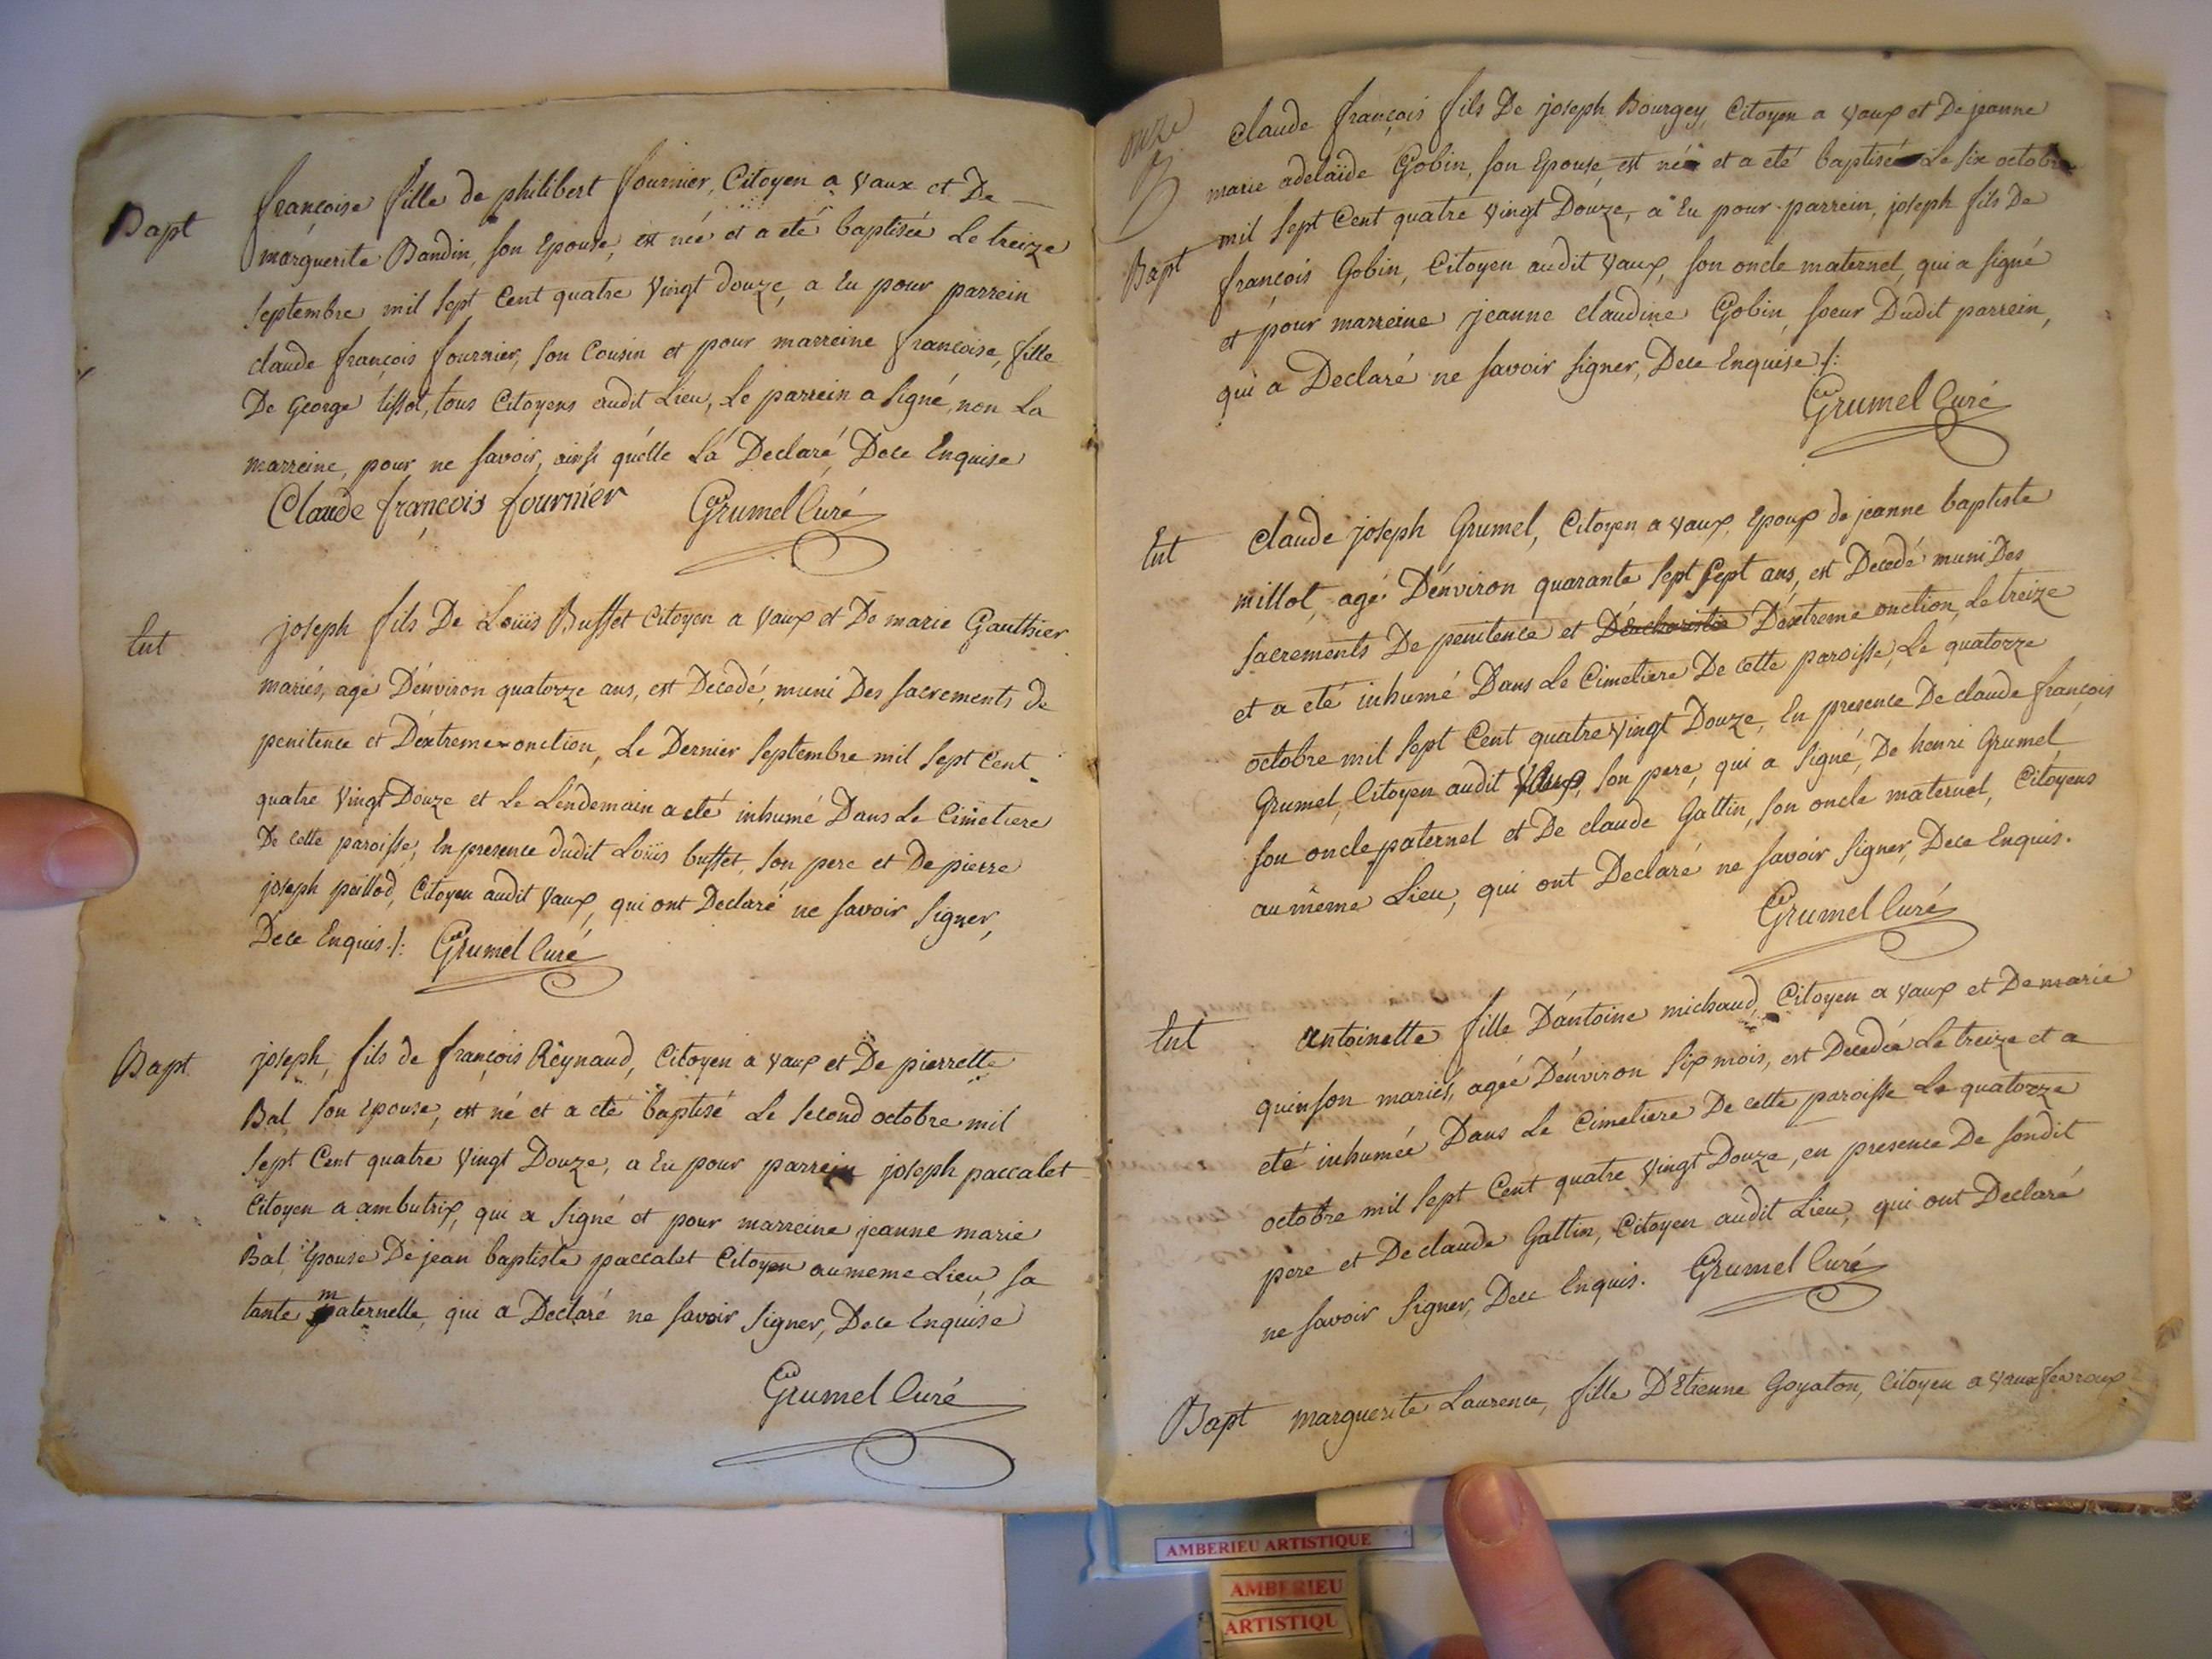 Bapt
françoise fille de philibert fournier, Citoyen a vaux et De
marguerite Bandin, son Epouse, est née et a eté baptisée Le treize
septembre mil sept Cent quatre vingt douze, a Eu pour parrein
claude françois fournier, son Cousin et pour marreine françoise, fille
De George tissot, tous Citoyens audit Lieu, Le parrein a signé, non La
marreine, pour ne savoir, ainsi qu'elle La Declaré, Dece Enquise
Claude françois fournier Grumel Curé
Ent
joseph fils De Loüis Buffet Citoyen a vaux et De marie Gauthier
mariés, agé D'environ quatorze ans, est Decedé, muni Des sacrements de
penitence et D'extreme-onction, Le Dernier septembre mil sept Cent
quatre vingt Douze et Le Lendemain a eté inhumé Dans Le Cimetiere
De cette paroisse, En presence dudit Loüis buffet, son pere et De pierre
joseph poillod, Citoyen audit vaux, qui ont Declaré ne savoir signer,
Dece Enquis ./. Grumel Curé
Bapt
joseph, fils de françois Reynaud, Citoyen a vaux et De pierrette
Bal son Epouse, est né et a eté baptisé Le second octobre mil
sept Cent quatre vingt Douze, a Eu pour parrein joseph paccalet
Citoyen a ambutrix, qui a signé et pour marreine jeanne marie
Bal Epouse De jean baptiste paccalet Citoyen au meme Lieu, sa
tante maternelle, qui a Declaré ne savoir signer, Dece Enquise
Grumel Curé
onze
Bapt
claude françois fils De joseph Bourgey, Citoyen a vaux et De jeanne
marie adelaïde Gobin, son Epouse, est né et a eté baptisé Le six octobre
mil sept Cent quatre vingt Douze, a Eu pour parrein, joseph fils De
françois Gobin, Citoyen audit vaux, son oncle maternel, qui a signé
et pour marreine jeanne claudine Gobin, soeur Dudit parrein,
qui a Declaré ne savoir signer, Dece Enquise ./.
Grumel Curé
Ent
claude joseph Grumel, Citoyen a vaux, Epoux de jeanne baptiste
millot, agé D'environ quarante sept sept ans, est Decedé muni Des
sacrements De penitence et D'eucharistie D'extreme onction, Le treize
et a eté inhumé Dans Le Cimetiere De cette paroisse, Le quatorze
octobre mil sept Cent quatre vingt Douze, En presence De claude françois
Grumel, Citoyen audit vaux, son pere, qui a signé, De henri Grumel
son oncle paternel et De claude Gattin, son oncle maternel, Citoyens
au même Lieu, qui ont Declaré ne savoir signer, Dece Enquis.
Grumel Curé
Ent
antoinette fille D'antoine michaud, Citoyen a vaux et De marie
quinson mariés, agée D'environ six mois, est Decedée Le treize et a
eté inhumée Dans Le Cimetiere De cette paroisse Le quatorze
octobre mil sept Cent quatre vingt Douze, en presence De sondit
pere et De claude Gattin, Citoyen audit Lieu, qui ont Declaré
ne savoir signer, Dece Enquis. Grumel Curé
Bapt marguerite Laurence, fille D'Etienne Goyaton, Citoyen a vaux
AMBERIEU ARTISTIQUE
AMBERIEU
ARTISTIQU